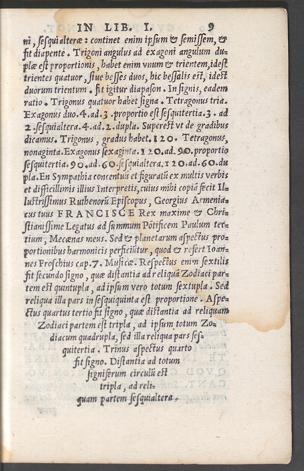 IN LIB. I. 9
ni, sesquialteræ: continet enim ipsum & semissem, &
fit diapente. Trigoni angulus ad exagoni angulum du-
plæ est proportionis, habet enim vnum & trientem, idest
trientes quatuor, siue besses duos, hic bessalis est, idest
duorum trientum. fit igitur diapason. In signis, eadem
ratio. Trigonus quatuor habet signa. Tetragonus tria.
Exagonus duo. 4. ad. 3. proportio est sesquitertia. 3. ad
2. sesquialtera. 4. ad. 2. dupla. Superest vt de gradibus
dicamus. Trigonus, gradus habet. 120. Tetragonus,
nonaginta. Exagonus sexaginta. 120. ad. 90. proportio
sesquitertia. 90. ad. 60. sesquialtera. 120. ad. 60. du
pla. En Sympathia concentus et figuratū ex multis verbis
et difficillimis illius Interpretis, cuius mihi copiā fecit Il
lustrissimus Ruthenorū Episcopus, Georgius Armenia-
cus tuus FRANCISCE Rex maxime & Chri-
stianissime Legatus ad summum Pōtificem Paulum ter-
tium, Mecænas meus. Sed & planetarum aspectus pro-
portionibus harmonicis perficiūtur, quod & refert Ioan-
nes Froschius cap. 7. Musicæ. Respectus enim sextilis
fit secundo signo, quæ distantia ad reliquā Zodiaci par-
tem est quintupla, ad ipsum vero totum sextupla. Sed
reliqua illa pars in sesquiquinta est proportione. Aspe-
ctus quartus tertio fit signo, quæ distantia ad reliquam
Zodiaci partem est tripla, ad ipsum totum Zo-
diacum quadrupla, sed illa reliqua pars ses-
quitertia. Trinus aspectus quarto
fit signo. Distantia ad totum
signiferum circulū est
tripla, ad reli-
quam partem sesquialtera.